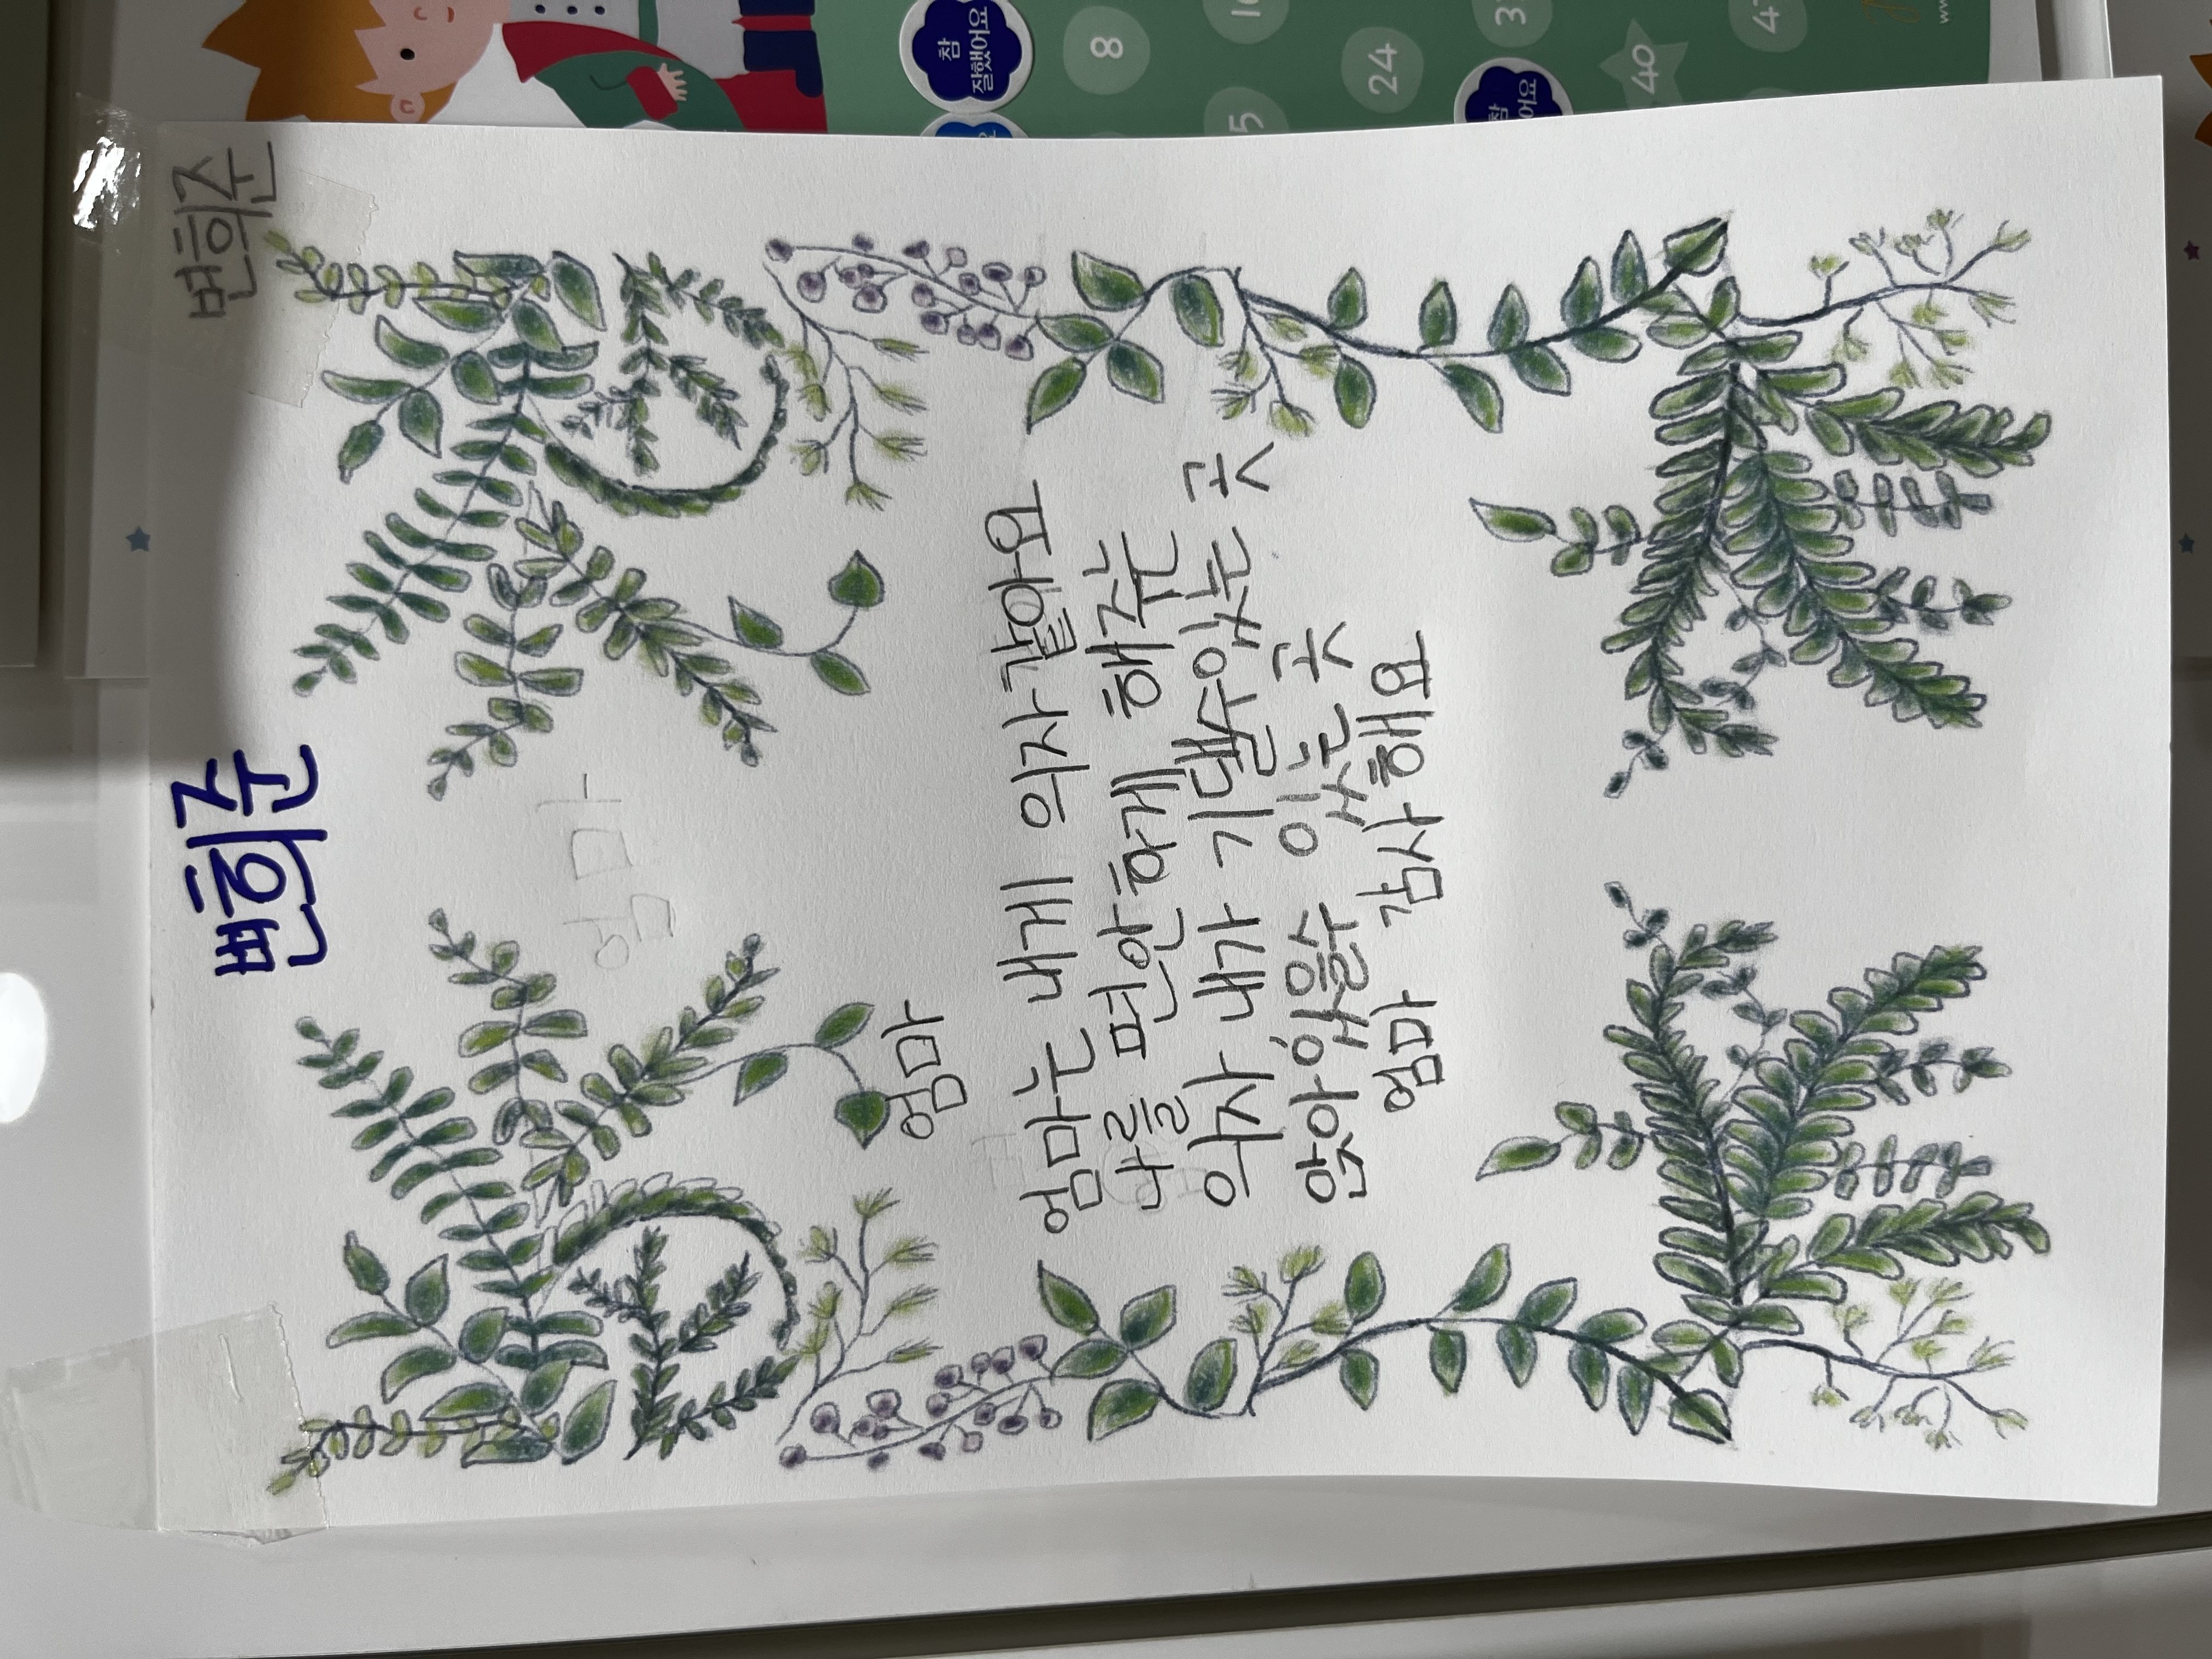 변희준
변희준
엄마
엄마
엄마는 내게 의자같아요
나를 편안하게 해주는
의자 내가 기댈수있는 곳
앉아있을수 있는 곳
엄마 감사해요
참
잘했어요
8
24
40